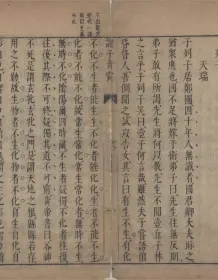 天瑞
子列子居鄭國四十年人無識者國君卿大夫眎之
猶眾庶也國不足將嫁於衛弟子曰先生往無反期
弟子敢有所謁先生將何以教先生不聞壺丘子林
之言乎子列子笑曰壺子何言哉雖然夫子嘗語伯
昏瞀人吾側聞之試以告女其言曰有生不生有化
不化不生者能生生不化者能化化生者不能不生
化者不能不化故常生常化常生常化者無時不生
無時不化陰陽爾四時爾不生者疑獨不化者往復
往復其際不可終疑獨其道不可窮黃帝書曰谷神
不死是謂玄牝玄牝之門是謂天地之根綿綿若存
用之不勤故生物者不生化物者不化自生自化自